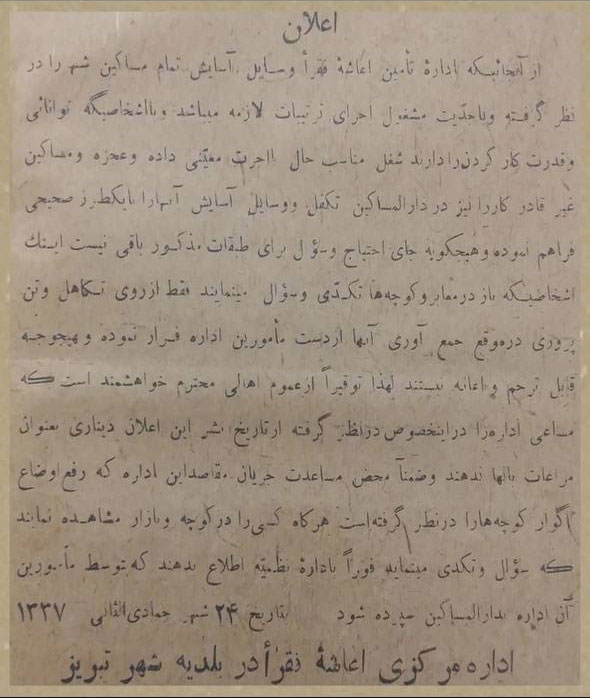 اعلان
از آنجائیکه ادارهٔ تأمین اعاشهٔ فقرأ وسایل آسایش تمام مساکین شهر را در
نظر گرفته وباجدّیت مشغول اجرای ترتیبات لازمه میباشد وبااشخاصیکه توانائی
وقدرت کار کردن را دارند شغل مناسب حال بااجرت معیّنی داده وعجزه ومساکین
غیر قادر کاررا نیز در دارالمساکین تکفل ووسایل آسایش آنهارا بایکطرز صحیحی
فراهم نموده وهیچگونه جای احتیاج وسؤال برای طبقات مذکور باقی نیست اینك
اشخاصیکه باز درمعابر وکوچه‌ها تکدّی وسؤال مینمایند فقط ازروی تکاهل وتن
پروری درموقع جمع آوری آنها ازدست مأمورین اداره فرار نموده وبهیچوجه
قابل ترحم واعانه نیستند لهذا توقیراً ازعموم اهالی محترم خواهشمند است که
مساعی اداره‌را دراینخصوص درنظر گرفته ازتاریخ نشر این اعلان دیناری بعنوان
مراعات بانها ندهند وضمناً محض مساعدت جریان مقاصداین اداره که رفع اوضاع
ناگوار کوچه‌هارا درنظر گرفته‌است هرکاه کسی‌را درکوچه وبازار مشاهده نمایند
که سؤال وتکدی مینماید فوراً باداره نظمیّه اطلاع بدهند که بتوسط مأمورین
آن اداره بدارالمساکین سپرده شود بتاریخ ۲۴ شهر جمادی‌الثانی ۱۳۳۷
اداره مرکزی اعاشهٔ فقرأ در بلدیه شهر تبریز